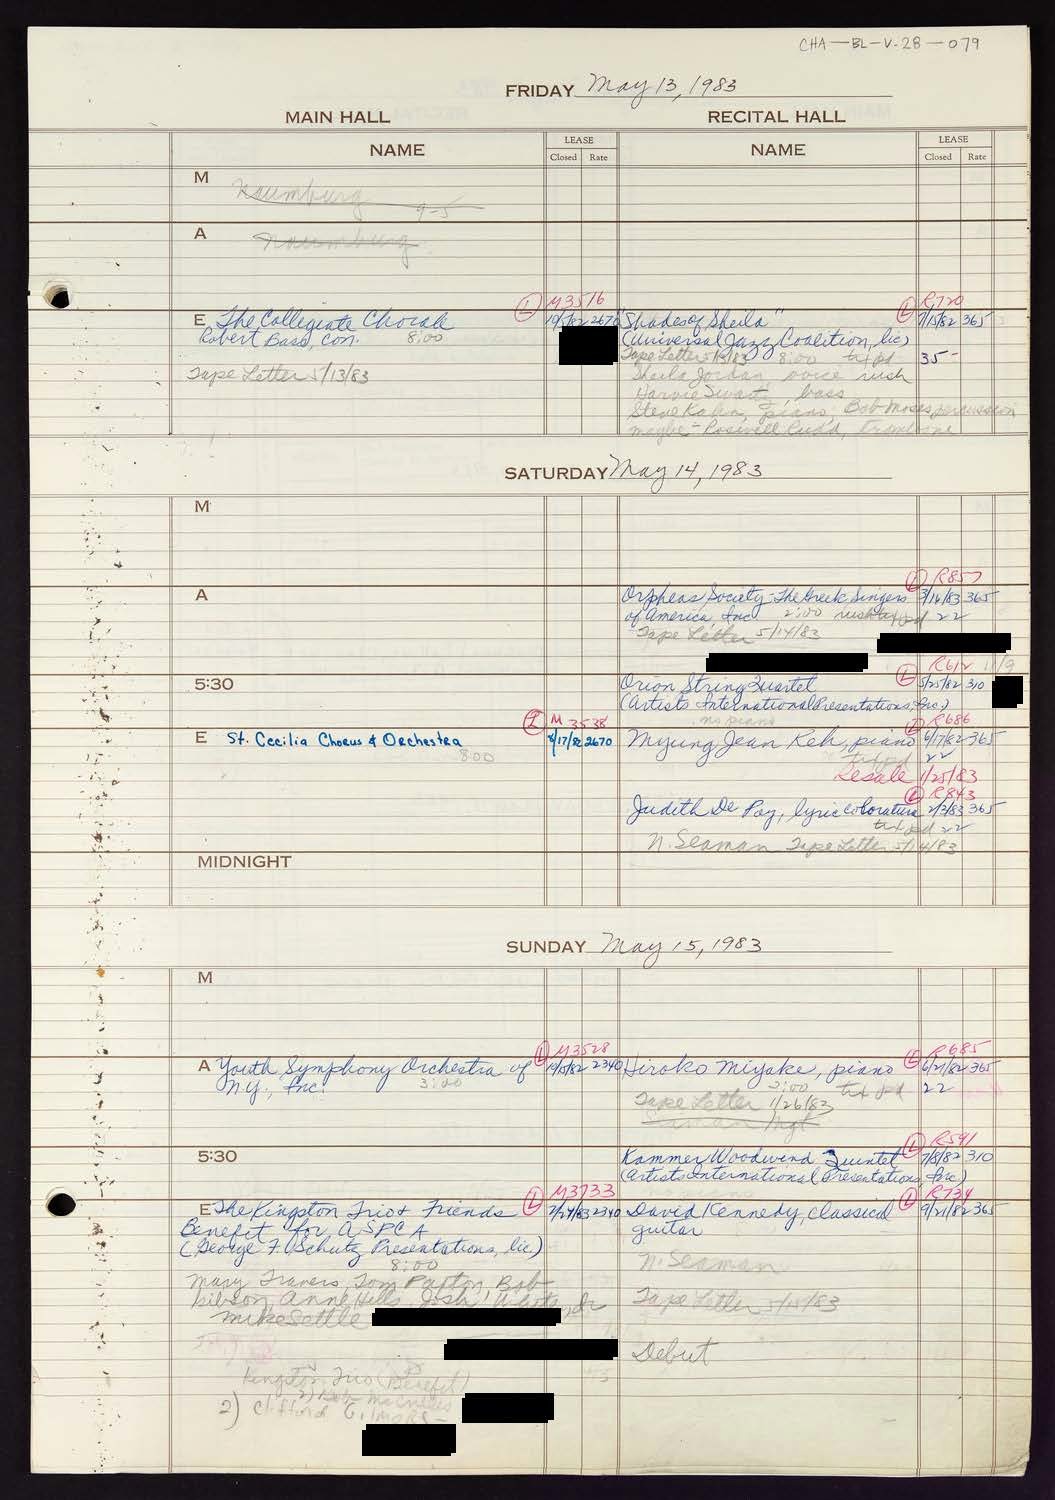 CHA-BL-V-28-079
FRIDAY May 13, 1983
MAIN HALL
RECITAL HALL
NAME
LEASE
Closed Rate
NAME
LEASE
Closed Rate
M
Naumburg
9-5
A
Naumburg
L M3516
E The Collegiate Chorale 2670
Robert Bass, con. 8:00
Tape Letter 5/13/83
L R720
"Shades of Sheila" 7/15/82 365
(Universal Jazz Coalition, Inc)
Tape Letter 5/13/83 8:00 txt pd 35-
Sheila Jordan, voice
Harvie Swartz, bass
Steve Kuhn, piano, Bob Moses, percussion
maybe - Roswell Rudd, trombone
SATURDAY May 14, 1983
M
A
L R857
Orpheas Society-The Greek Singers 3/14/83 365
of America, Inc. 2:00 txt pd 22
Tape Letter 5/14/83
5:30
L R612 11/9
Orion String Quartet 5/25/82 310
(Artists International Presentations, Inc.)
no piano
L M 3538
E St. Cecilia Chorus & Orchestra 8/17/82 2670
8:00
L R686
Myung Jean Reh, piano 6/17/82 365
txt pd 22
Resale 1/25/83
L R843
Judith De Poy, lyric coloratura 2/3/83 365
txt pd 22
N. Seaman Tape Letter 5/14/83
MIDNIGHT
SUNDAY May 15, 1983
M
L M3528
A Youth Symphony Orchestra of 2340
N.Y., Inc. 3:00
L R685
Hiroko Miyake, piano 6/21/82 365
2:00 txt pd 22
Tape Letter 1/26/83
Seaman Mgt
5:30
L R591
Kammer Woodwind Quintet 7/8/82 310
(Artists International Presentations, Inc)
L M3733
E The Kingston Trio & Friends 2/24/83 2340
Benefit for ASPCA
(George F. Schutz Presentations, Inc)
8:00
Mary Travers, Tom Paxton, Bob
Gibson, Anne Hills, Josh White, Jr
Mike Settle
L R734
David Kennedy, classical 9/21/82 365
guitar
N. Seaman
Tape Letter 5/15/83
Debut
Kingston Trio (Benefit)
2) Clifford